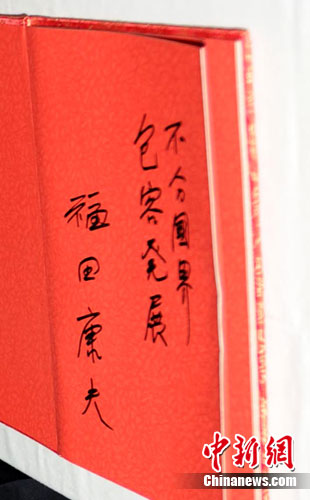 不分國界
包容発展
福田康夫
中新網
www.
Chinanews.com